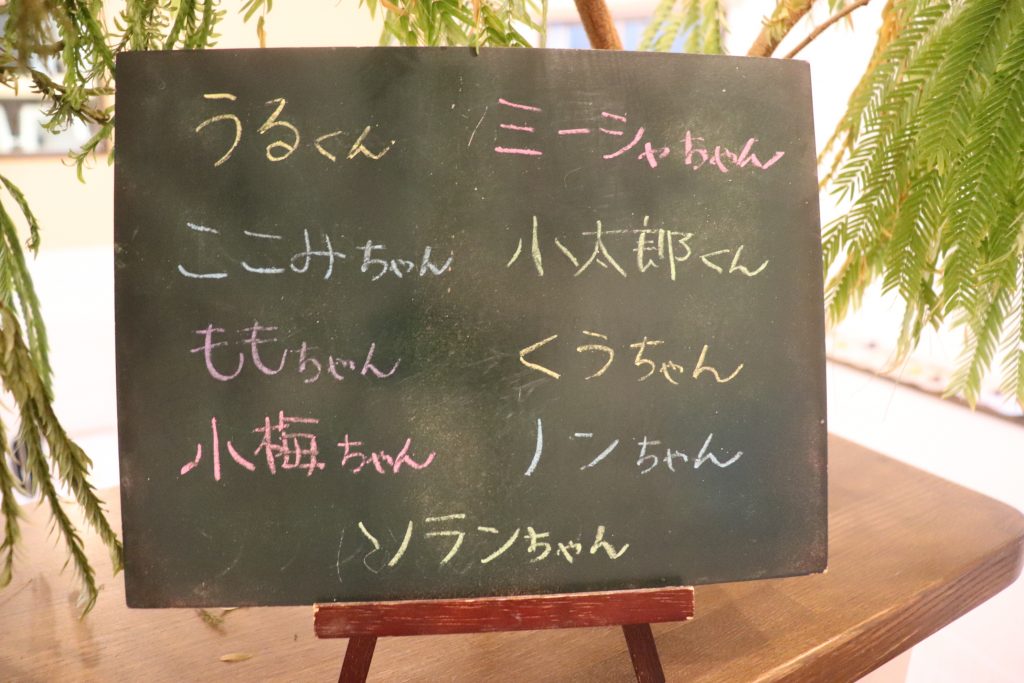 うるくん ミーシャちゃん
ここみちゃん 小太郎くん
ももちゃん くうちゃん
小梅ちゃん ノンちゃん
ソランちゃん